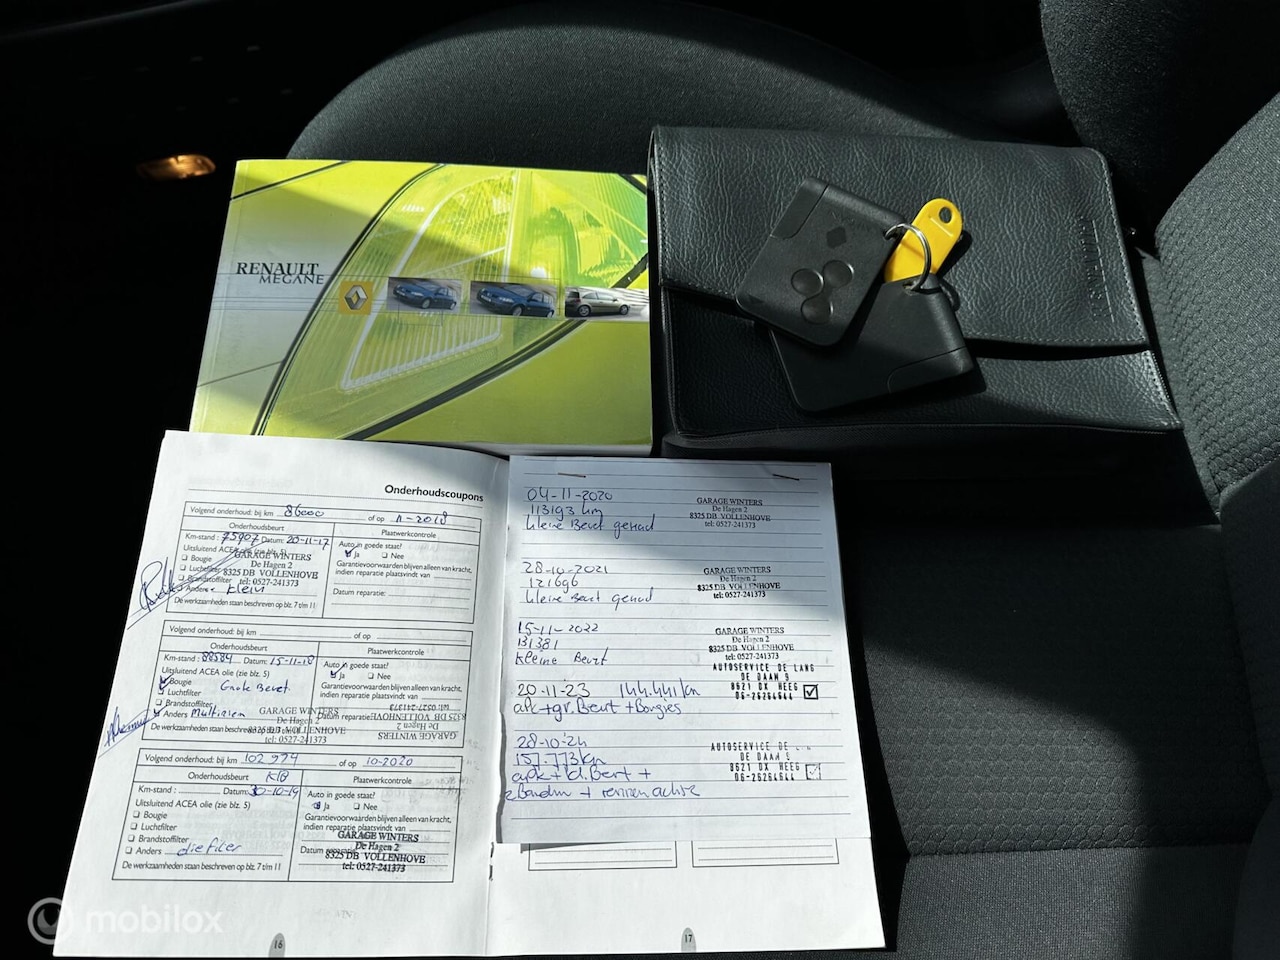 RENAULT
MEGANE
RENAULT
Onderhoudscoupons
Volgend onderhoud: bij km 86000 of op 11-2018
Onderhoudsbeurt
Plaatwerkcontrole
Km-stand: 75907 Datum: 20-11-17
Auto in goede staat?
Uitsluitend ACEA olie (zie blz. 5)
Ja Nee
Bougie
Garantievoorwaarden blijven alleen van kracht,
Luchtfilter
indien reparatie plaatsvindt van
Brandstoffilter
Anders Klein
Datum reparatie:
De werkzaamheden staan beschreven op blz. 7 t/m 11
GARAGE WINTERS
De Hagen 2
8325 DB VOLLENHOVE
tel: 0527-241373
Volgend onderhoud: bij km of op
Onderhoudsbeurt
Plaatwerkcontrole
Km-stand: 88584 Datum: 15-11-18
Auto in goede staat?
Uitsluitend ACEA olie (zie blz. 5)
Ja Nee
Bougie Grote Beurt
Garantievoorwaarden blijven alleen van kracht,
Luchtfilter
indien reparatie plaatsvindt van
Brandstoffilter
Anders Multiriem
Datum reparatie
De werkzaamheden staan beschreven
GARAGE WINTERS
De Hagen 2
8325 DB VOLLENHOVE
tel: 0527-241373
GARAGE WINTERS
De Hagen 2
8325 DB
tel: 0527-241373
Volgend onderhoud: bij km 102 974 of op 10-2020
Onderhoudsbeurt
Plaatwerkcontrole
Km-stand: Datum: 30-10-19
Auto in goede staat?
Uitsluitend ACEA olie (zie blz. 5)
Ja Nee
Bougie
Garantievoorwaarden blijven alleen van kracht,
Luchtfilter
indien reparatie plaatsvindt van
Brandstoffilter
Anders
Datum
De werkzaamheden staan beschreven op blz. 7 t/m 11
GARAGE WINTERS
De Hagen 2
8325 DB VOLLENHOVE
tel: 0527-241373
16
04-11-2020
113193 km
kleine Beurt gehad
GARAGE WINTERS
De Hagen 2
8325 DB VOLLENHOVE
tel: 0527-241373
28-10-2021
121696
kleine Beurt gehad
GARAGE WINTERS
De Hagen 2
8325 DB VOLLENHOVE
tel: 0527-241373
15-11-2022
131381
kleine Beurt
GARAGE WINTERS
De Hagen 2
8325 DB VOLLENHOVE
tel: 0527-241373
20-11-23 144.441 km
apk + gr. Beurt + Bougies
AUTOSERVICE DE LANG
DE DAAM 9
8621 DX HEEG
06-26264644
28-10-24
157.773 km
apk + kl. Beurt +
2 Banden + remmen achter
AUTOSERVICE DE
DE DAAM
8621 DX HEEG
06-26264644
17
mobilox